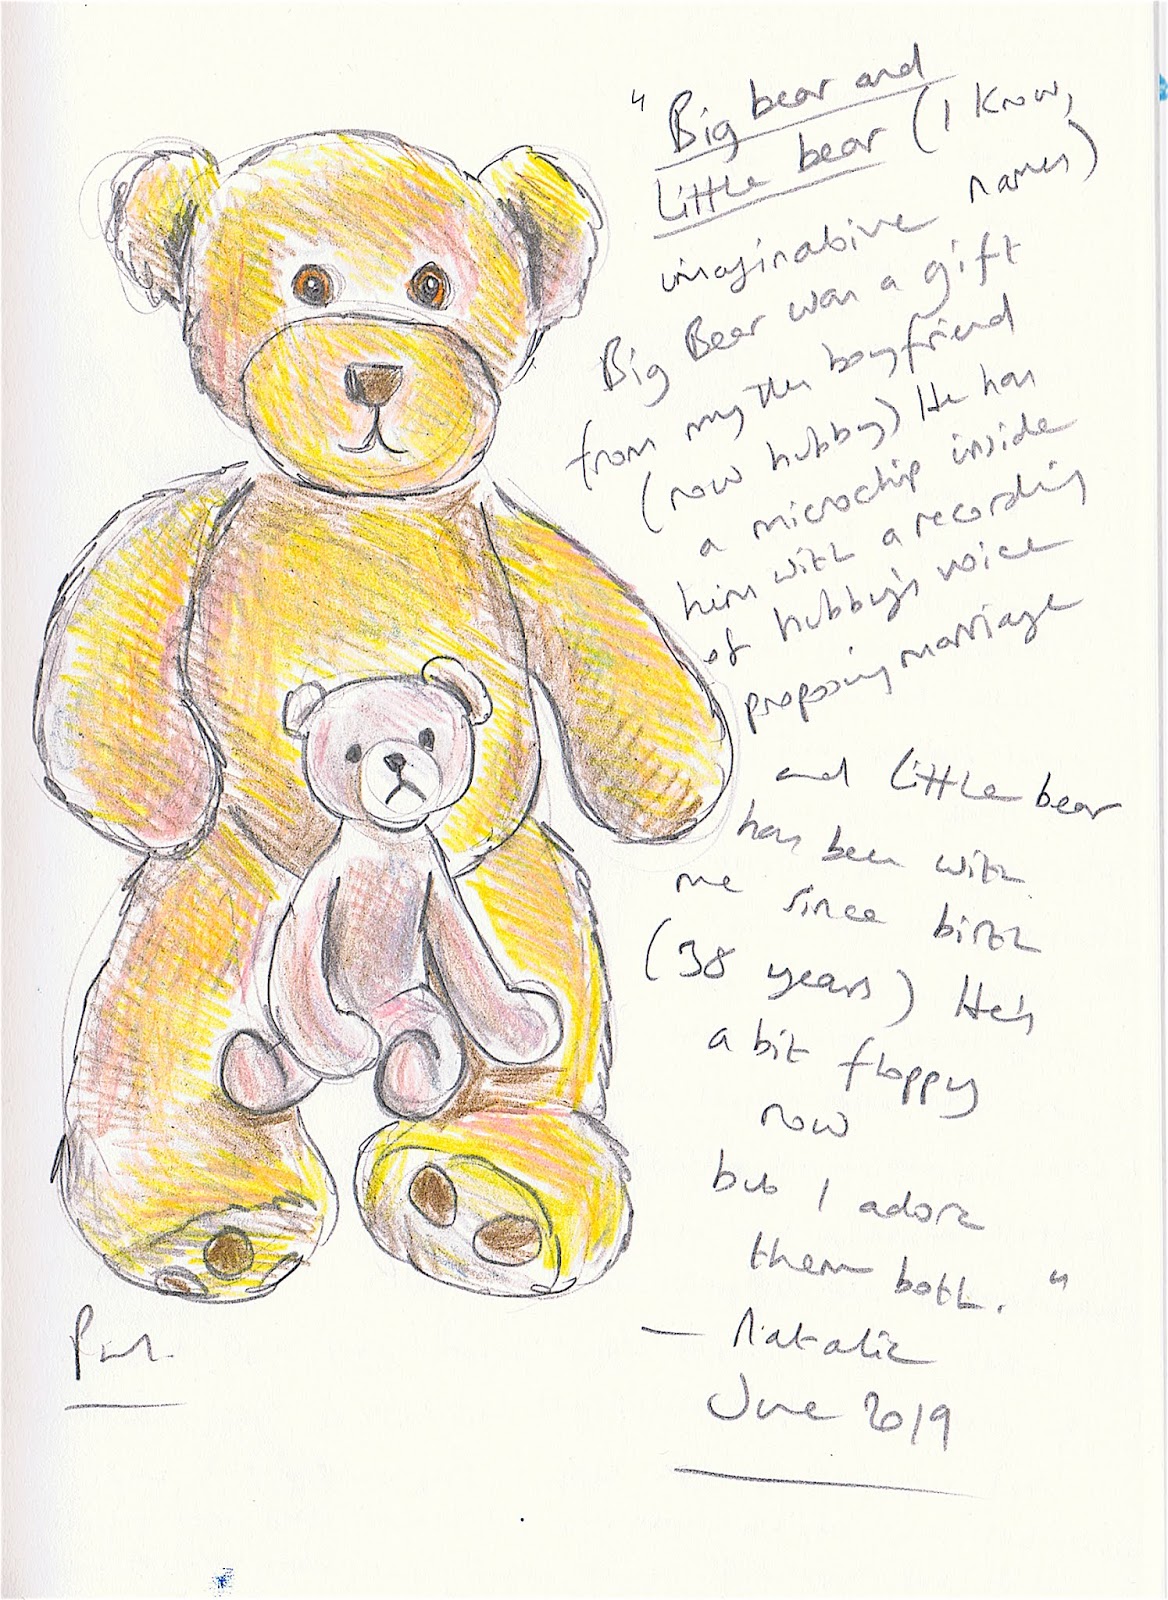 " Big bear and
Little bear (I know,
imaginative names)
Big Bear was a gift
from my then boyfriend
(now hubby) He has
a microchip inside
him with a recording
of hubby's voice
proposing marriage
and Little bear
has been with
me since birth
(38 years) He's
a bit floppy
now
but I adore
them both. "
— Natalie
June 2019